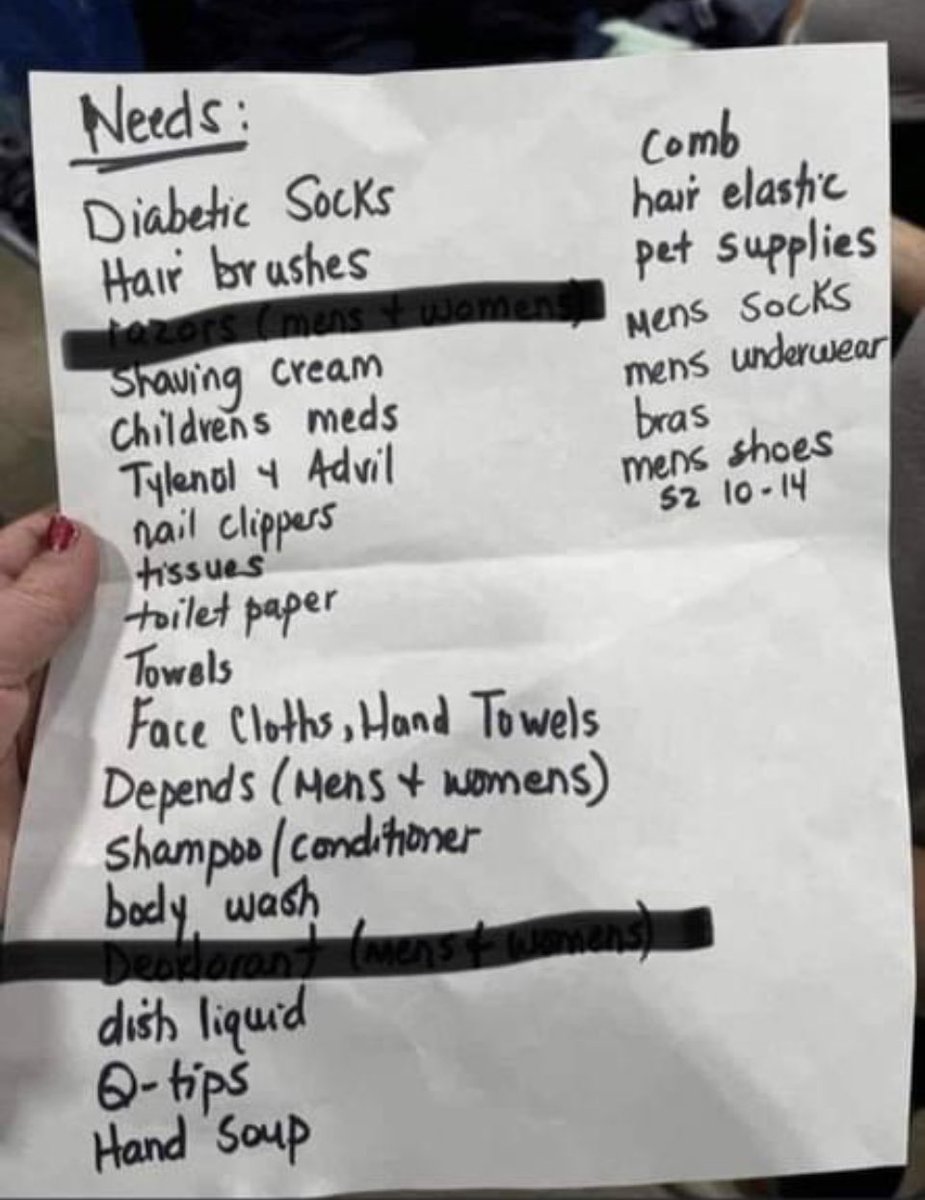 Needs:
Diabetic Socks
Hair brushes
razors (mens + womens)
Shaving cream
Childrens meds
Tylenol & Advil
nail clippers
tissues
toilet paper
Towels
Face Cloths, Hand Towels
Depends (Mens + womens)
Shampoo/conditioner
body wash
Deodorant (mens + womens)
dish liquid
Q-tips
Hand Soup
Comb
hair elastic
pet supplies
Mens Socks
mens underwear
bras
mens shoes
sz 10-14